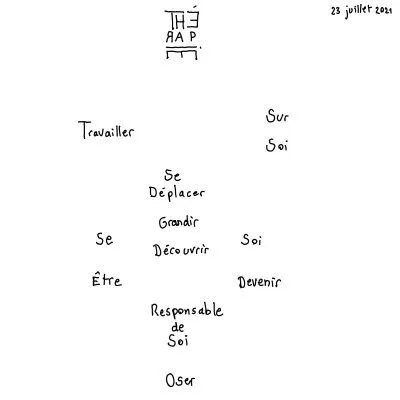 23 juillet 2021
THÉ
RAP
E.
Travailler
Sur
Soi
Se
Déplacer
Grandir
Se Découvrir Soi
Être Devenir
Responsable
de
Soi
Oser